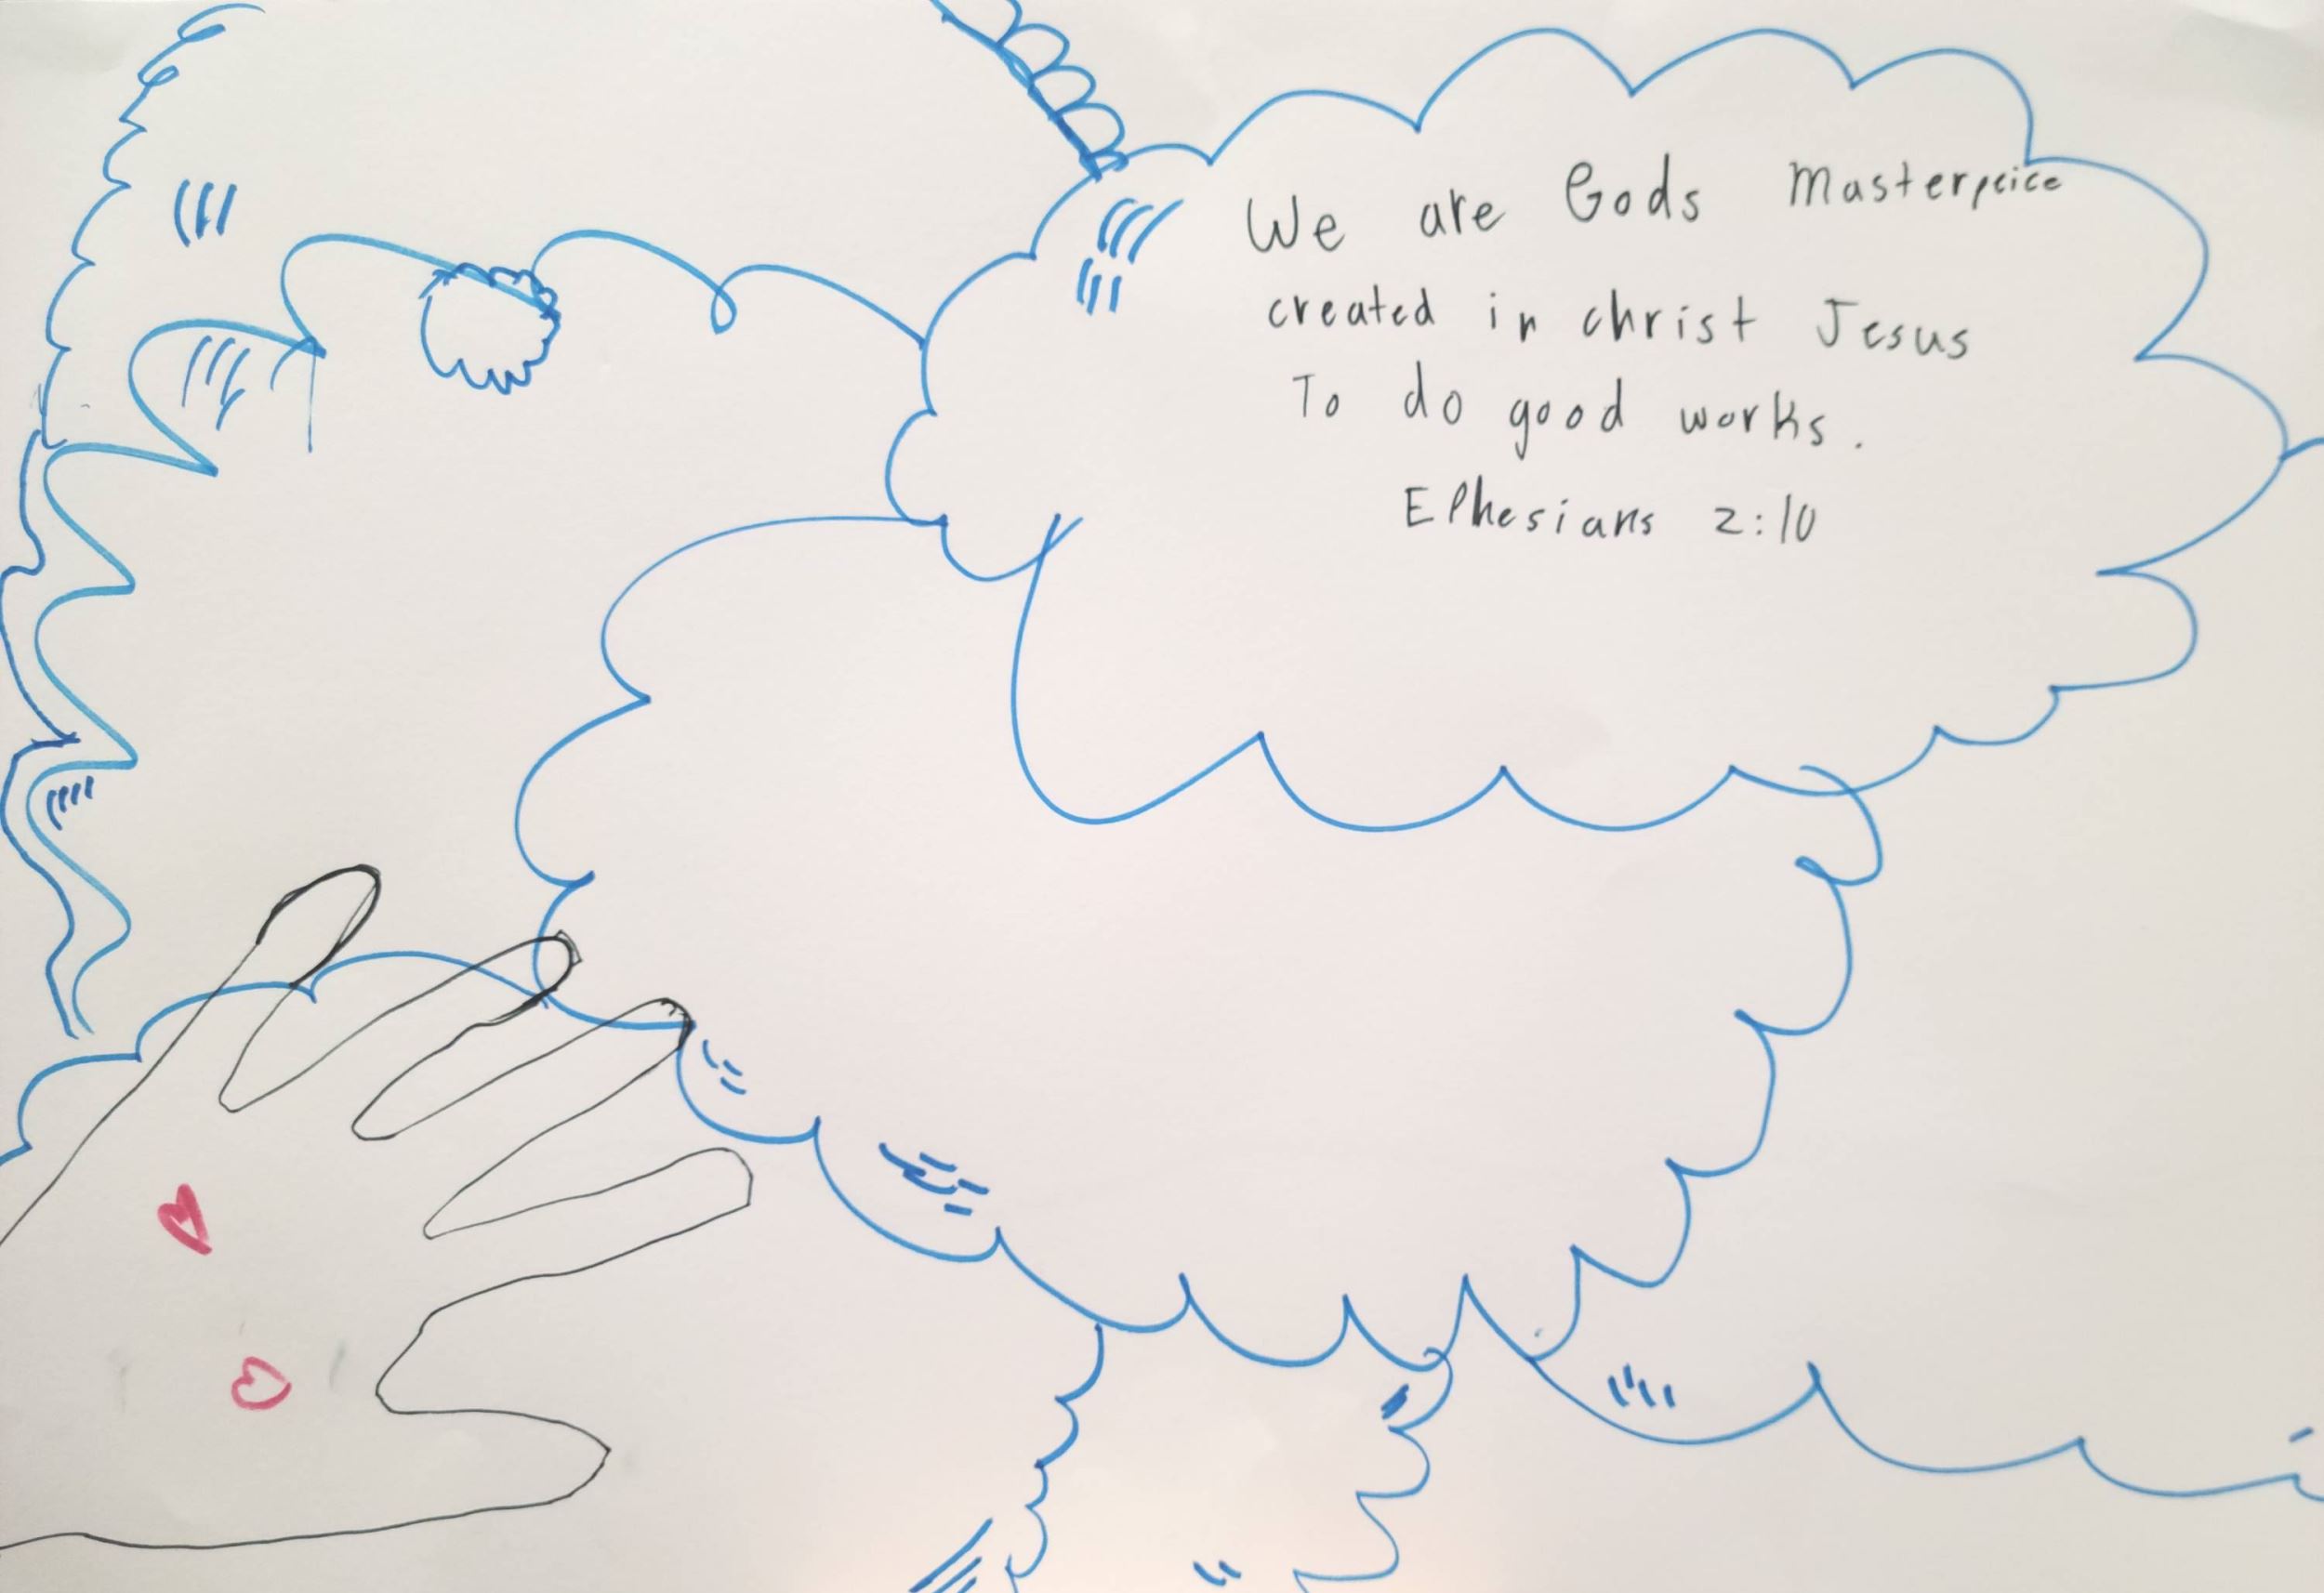 We are Gods Masterpeice
created in christ Jesus
To do good works.
Ephesians 2:10